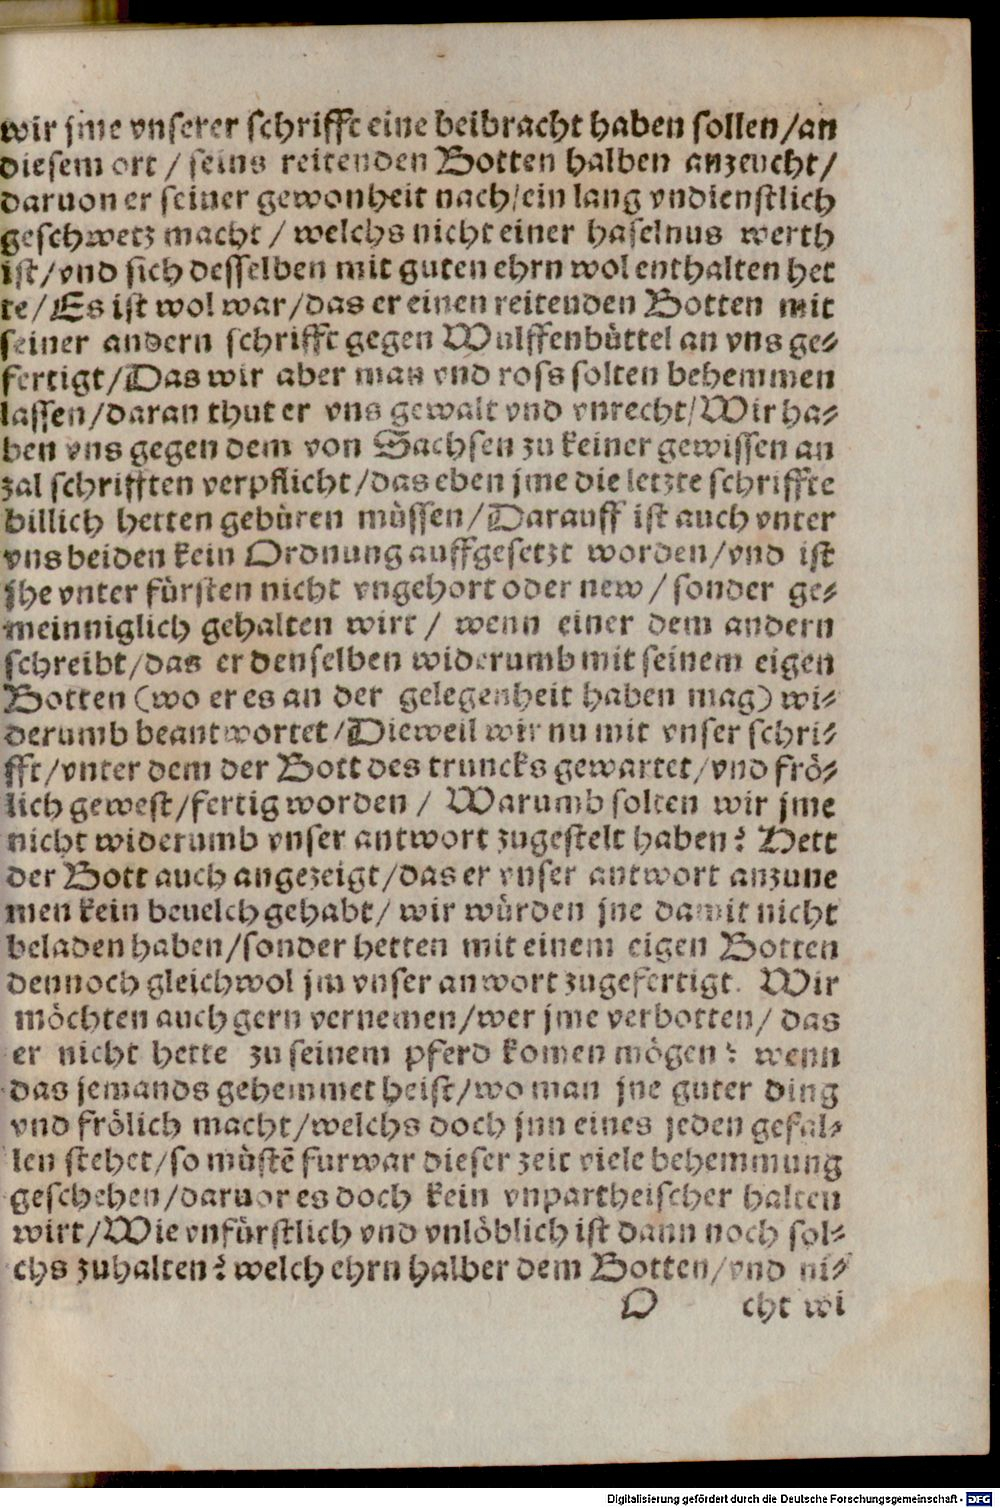 wir jme vnserer schrifft eine beibracht haben sollen/an
diesem ort / seins reitenden Botten halben anzeucht/
daruon er seiner gewonheit nach/ein lang vndienstlich
geschwetz macht / welchs nicht einer haselnus werth
ist/vnd sich desselben mit guten ehrn wol enthalten het
te/Es ist wol war/das er einen reitenden Botten mit
seiner andern schrifft gegen Wulffenbüttel an vns ge-
fertigt/Das wir aber man vnd ross solten behemmen
lassen/daran thut er vns gewalt vnd vnrecht/Wir ha-
ben vns gegen dem von Sachsen zu keiner gewissen an
zal schrifften verpflicht/das eben jme die letzte schriffte
billich hetten gebüren müssen/Darauff ist auch vnter
vns beiden kein Ordnung auffgesetzt worden/vnd ist
jhe vnter fürsten nicht vngehort oder new / sonder ge-
meinniglich gehalten wirt / wenn einer dem andern
schreibt/das er denselben widerumb mit seinem eigen
Botten (wo er es an der gelegenheit haben mag) wi-
derumb beantwortet/Dieweil wir nu mit vnser schri-
fft/vnter dem der Bott des truncks gewartet/vnd frö-
lich gewest/fertig worden / Warumb solten wir jme
nicht widerumb vnser antwort zugestelt haben? Hett
der Bott auch angezeigt/das er vnser antwort anzune
men kein beuelch gehabt/ wir würden jne damit nicht
beladen haben/sonder hetten mit einem eigen Botten
dennoch gleichwol jm vnser anwort zugefertigt. Wir
möchten auch gern vernemen/wer jme verbotten/ das
er nicht hette zu seinem pferd komen mögen? wenn
das jemands gehemmet heist/wo man jne guter ding
vnd frölich macht/welchs doch jnn eines jeden gefal-
len stehet/so müstē furwar dieser zeit viele behemmung
geschehen/daruor es doch kein vnpartheischer halten
wirt/Wie vnfürstlich vnd vnlöblich ist dann noch sol-
chs zuhalten? welch ehrn halber dem Botten/vnd ni-
O cht wi
Digitalisierung gefördert durch die Deutsche Forschungsgemeinschaft - DFG